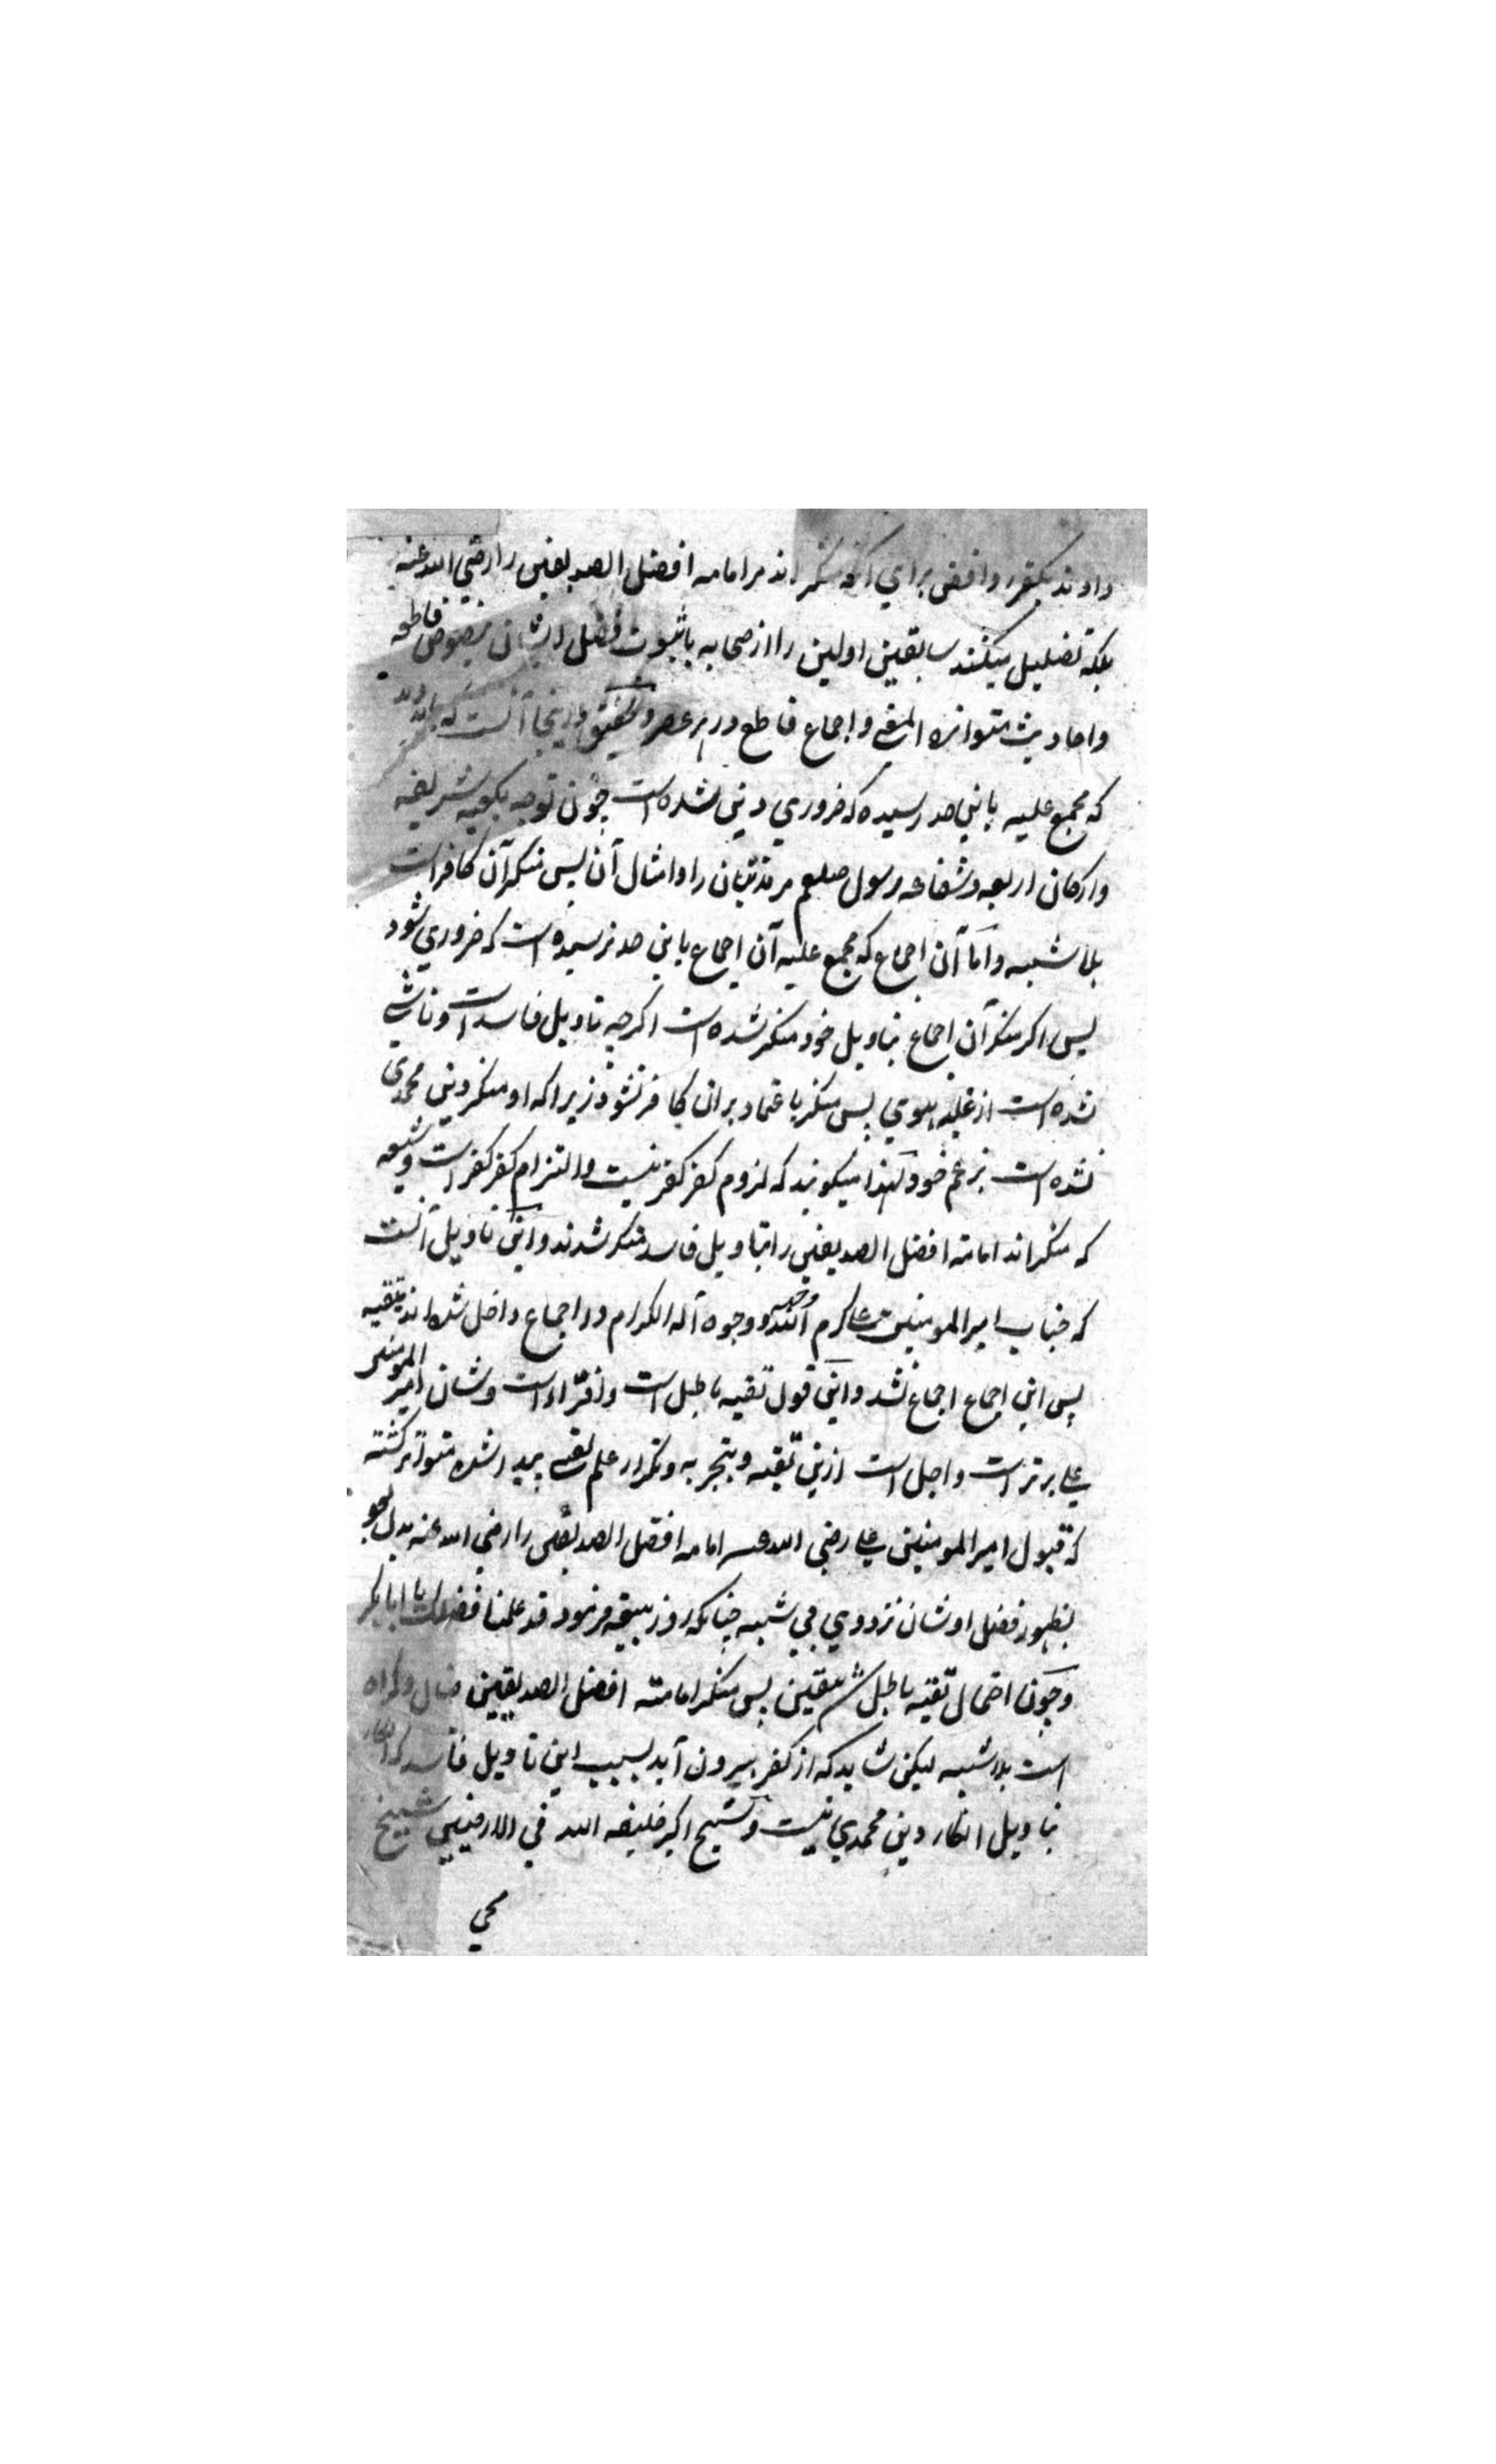 دادند بکفر روافض برای آنکه منکر اند مر امامه افضل الصدیقین را رضی الله عنه
بلکه تضلیل میکنند سابقین اولین را از صحابه با ثبوت فضل ایشان بنصوص قاطعه
واحادیث متواتره المعنی واجماع قاطع در هر عصر وتحقیق درینجا آنست که باید دید
که مجمع علیه باین حد رسیده که ضروری دینی شده است چون توجه بکعبه شریفه
وارکان اربعه وشفاعه رسول صلعم مر مذنبان را وامثال آن پس منکر آن کافر است
بلا شبهه واما آن اجماع که مجمع علیه آن اجماع باین حد نرسیده است که ضروری شود
پس اگر منکر آن اجماع بتاویل خود منکر شده است اگرچه تاویل فاسد است وناشی
شده است از غلبه هوی پس منکر باعتماد بران کافر نشود زیرا که او منکر دین محمدی
نشده است بزعم خود لهذا میگویند که لزوم کفر کفر نیست والتزام کفر کفر است وشیعه
که منکر اند امامة افضل الصدیقین را بتاویل فاسد منکر شدند واین تاویل آنست
که جناب امیر المومنین علی کرم الله وجهه ووجوه آله الکرام در اجماع داخل شده اند بتقیه
پس این اجماع اجماع نشد واین قول تقیه باطل است وافترااست وشان امیر المومنین
علی برتر است واجل است ازین تقیه وبتجربه وتکرار علم یقینی پیدا شده متواتر گشته
که قبول امیر المومنین علی رضی الله عنه امامه افضل الصدیقین را رضی الله عنه بدل بود
بظهور فضل اوشان نزد وی بی شبهه چنانکه روز بیعه فرمود قد علمنا فضلک یا ابا بکر
وچون احتمال تقیه باطل شد بیقین پس منکر امامته افضل الصدیقین ضال وگمراه
است بلا شبهه لیکن شاید که از کفر بیرون آید بسبب این تاویل فاسد که انکار
بتاویل انکار دین محمدی نیست وشیخ اکبر خلیفه الله فی الارضین شیخ
محی